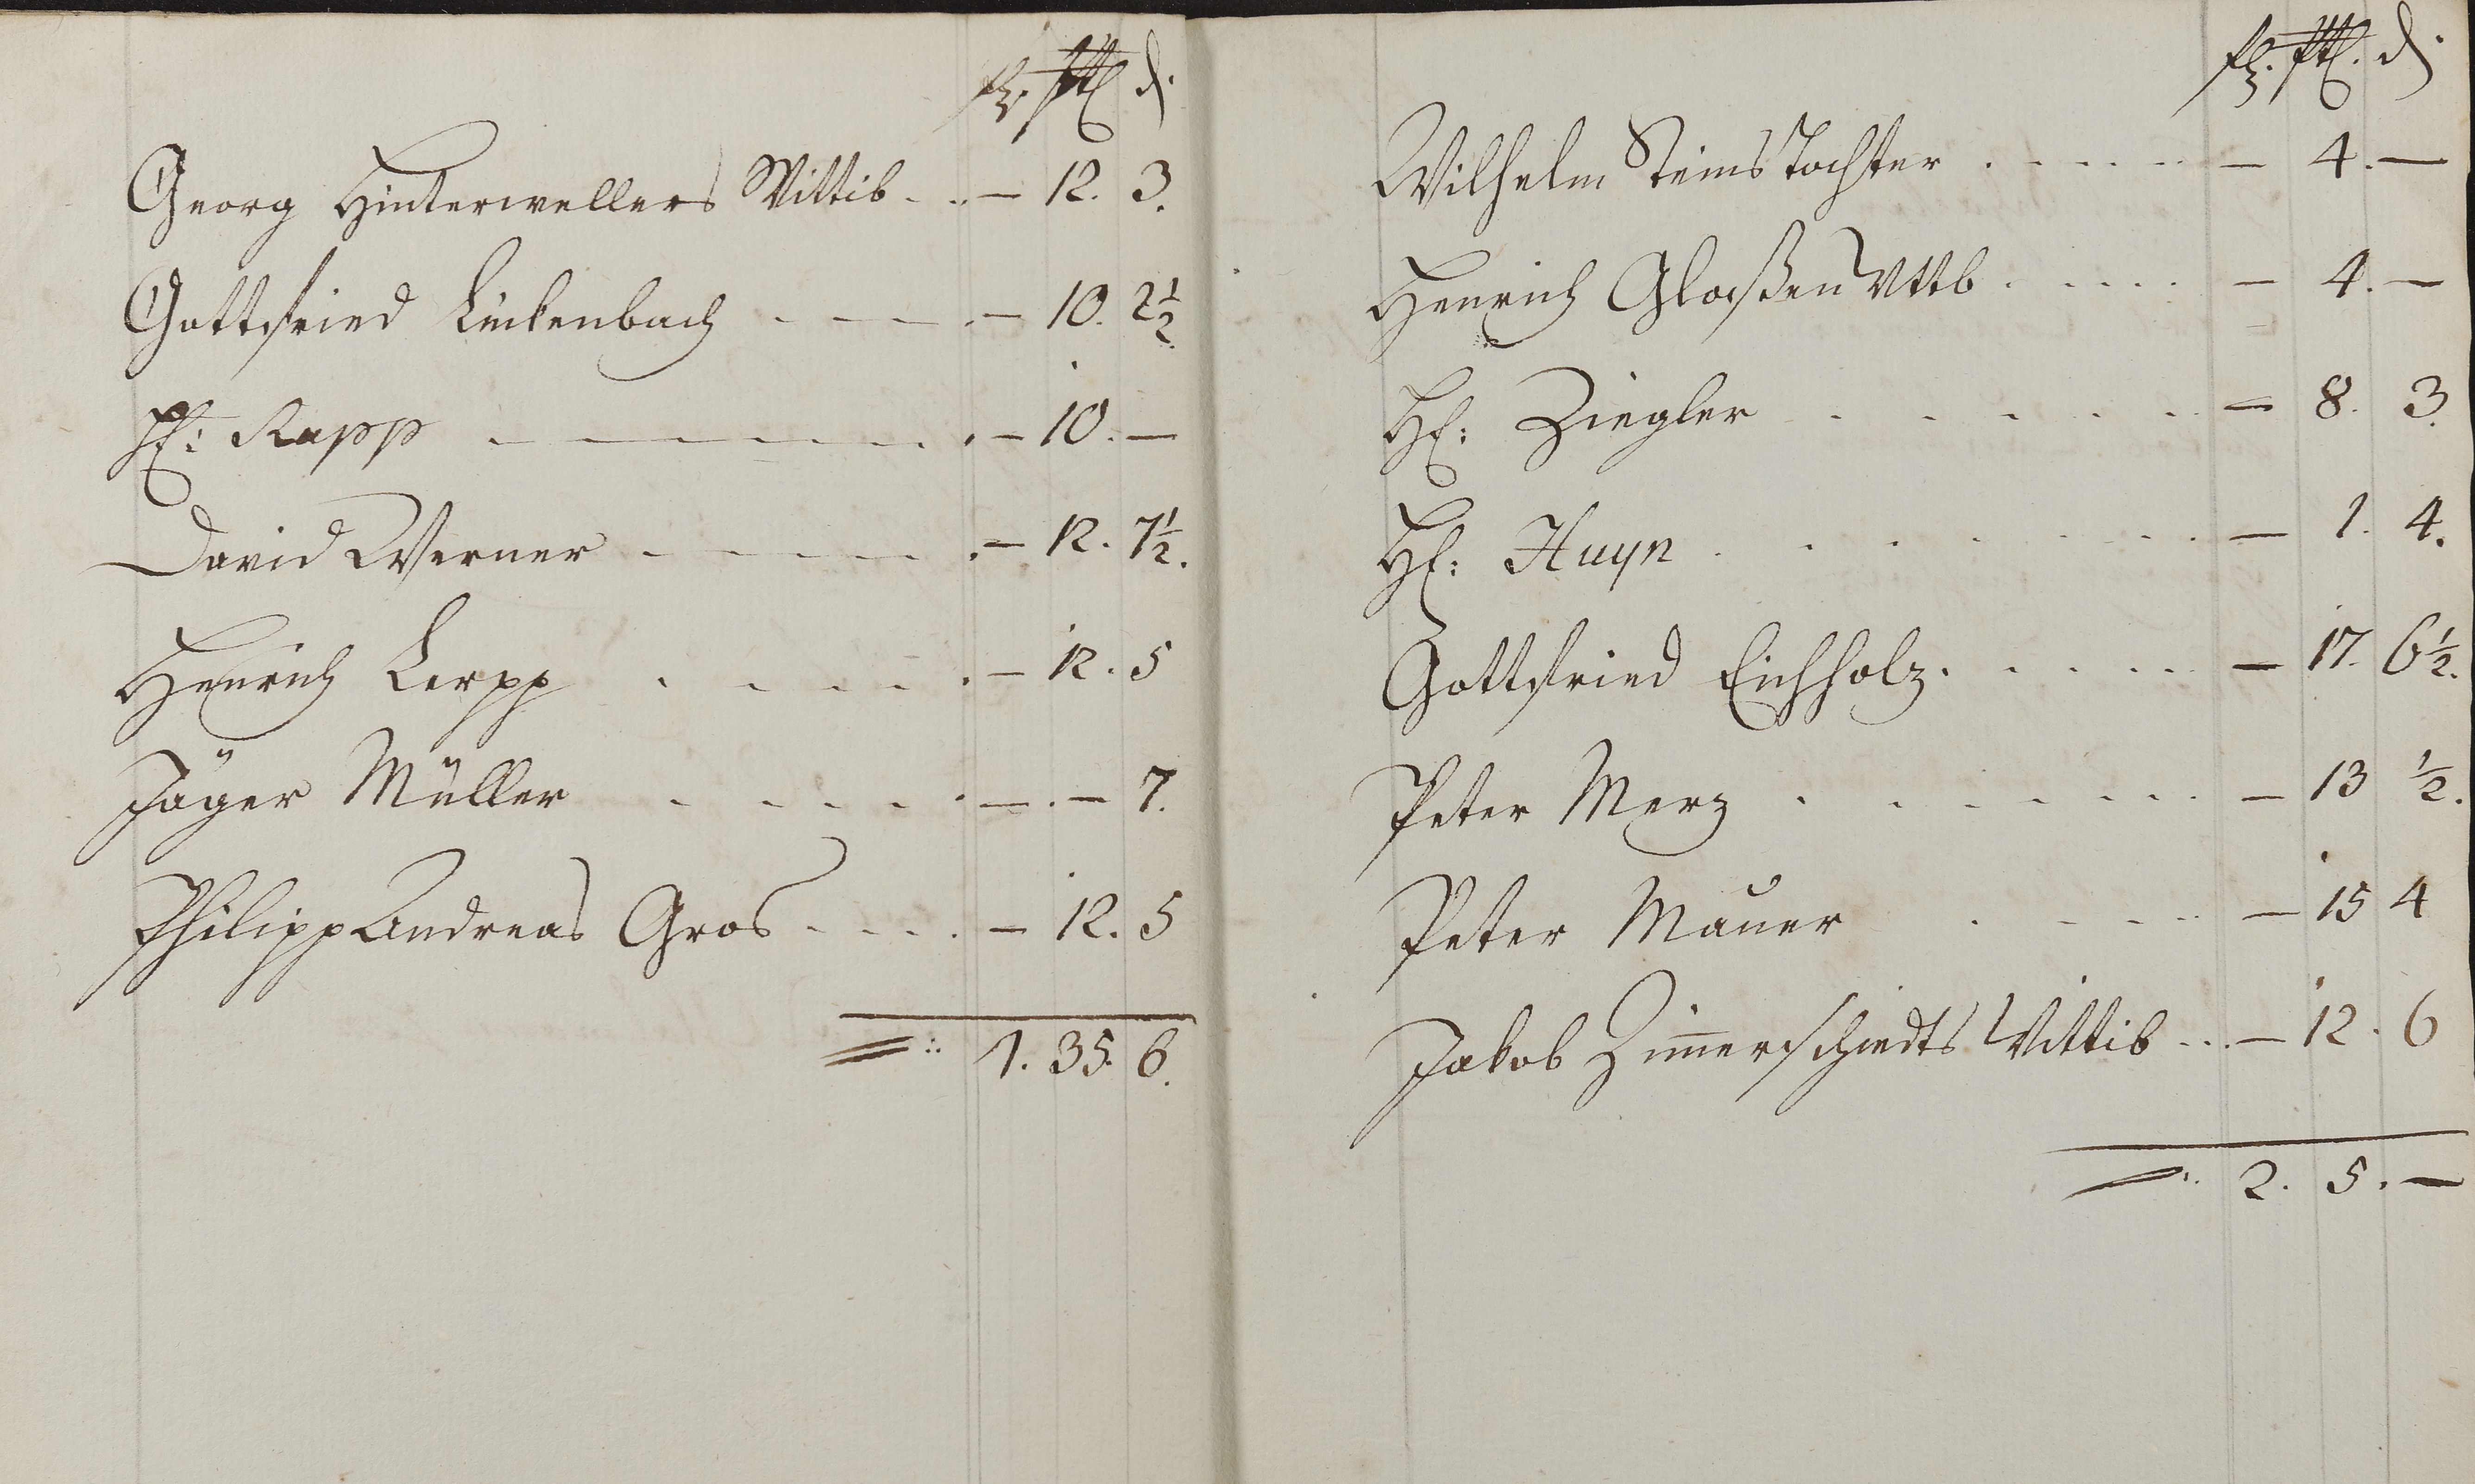 Georg Hinterwellers Wittib - .. — 12. 3.
Gottfried Linkenbach - - - - . — 10. 2½
H: Rapp - - - - - - . — 10. —
David Werner - - - - - . — 12. 7½.
Henrich Lerpp . - - - . — 12. 5
Jäger Müller - - - - . — . — 7.
Philipp Andreas Gros - - - . — 12. 5
1. 35. 6.
Wilhelm Steins Tochter . - - - - — 4. —
Henrich Glaßen Wttb . - - - . — 4. —
H: Ziegler - - - - - — 8. 3.
H: Huyn . - - - - - — 1. 4.
Gottfried Eichholz . - - - — 17. 6½.
Peter Merz . - - - - - — 13 ½.
Peter Mauer . - - - — 15 4
Jakob Zim̄erschiedts Wittib ... — 12. 6
2. 5. —